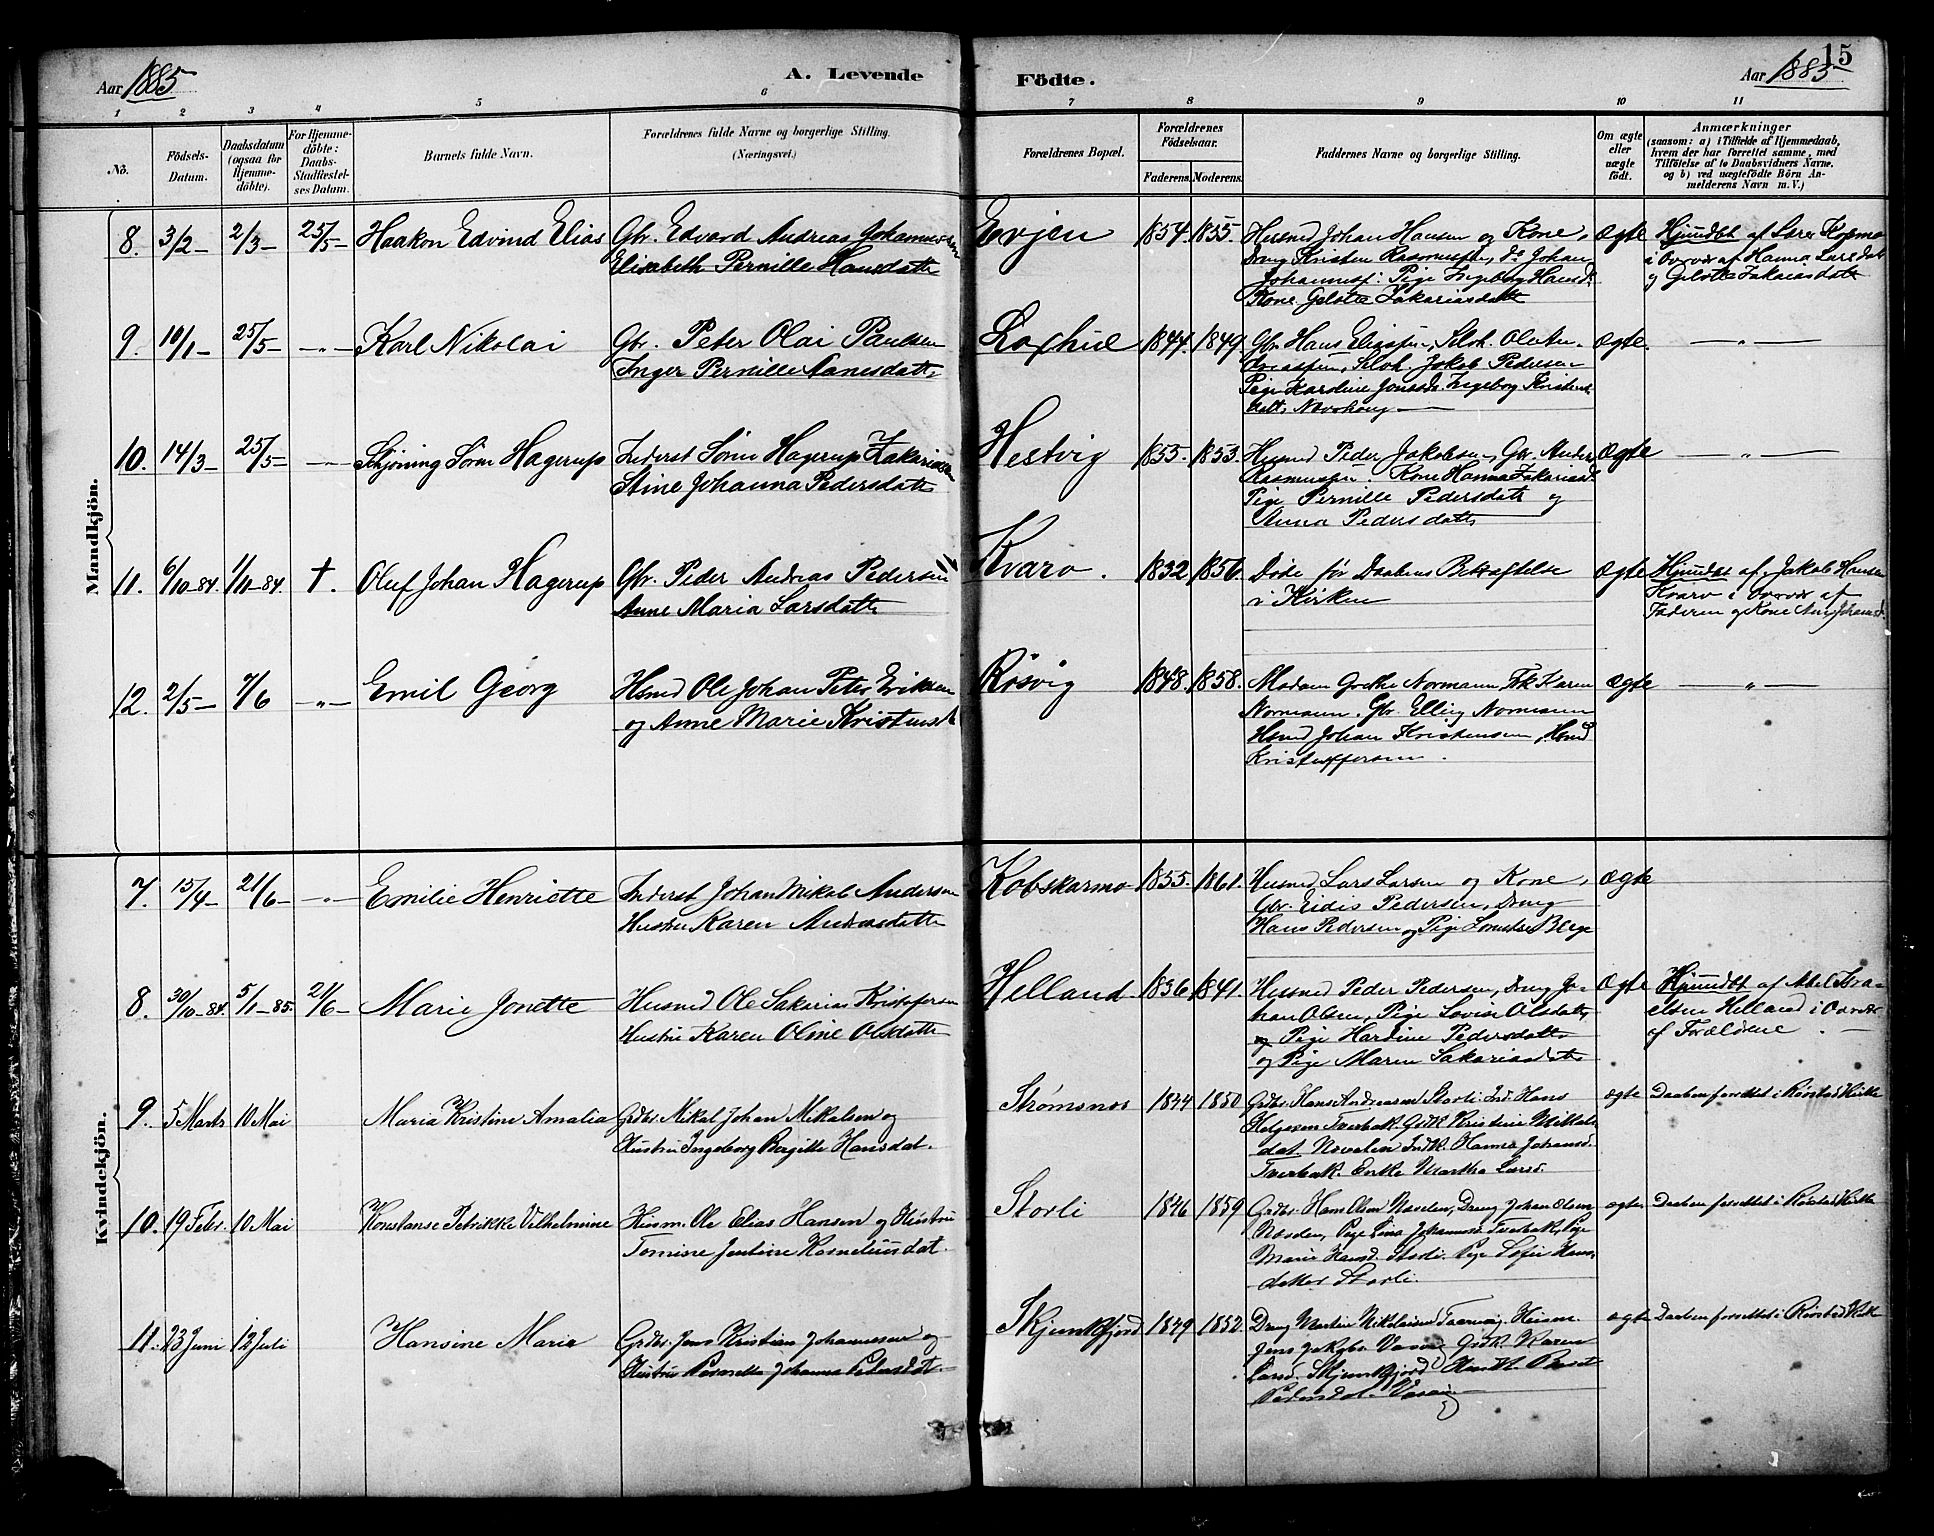 Aar 1885
A. Levende Födte.
Aar 1885
15
1 2 3 4 5 6 7 8 9 10 11
No.
Födsels-Datum.
Daabsdatum (ogsaa for Hjemme-döbte).
For Hjemme-döbte: Daabs-Stadfæstel-ses Datum.
Barnets fulde Navn.
Forældrenes fulde Navne og borgerlige Stilling. (Næringsvei.)
Forældrenes Bopæl.
Forældrenes Födselsaar.
Faderens. Moderens.
Faddernes Navne og borgerlige Stilling.
Om ægte eller uægte födt.
Anmærkninger
(saasom: a) i Tilfælde af Hjemmedaab,
hvem der har forrettet samme, med
Tilföielse af to Daabsvidners Navne,
og b) ved uægtefödte Börn An-
melderens Navn m. V.)
Mandkjön.
8. 3/2 2/3 25/5 Haakon Edvind Elias
Gbr. Edvard Andreas Johannessen
Elisabeth Pernille Hansdatte
Evjen 1854. 1855.
Husmd Johan Hansen og Kone,
Dreng Kristen Rasmussen, do Johan
Johannessen. Pige Ingeborg Hansd.
Kone Zakariasdatte
ægte
Hjmdbt af Lærer Kopmo
i Overvær af Hanna Larsdat
og Zakariasdatte
9. 10/1 25/5 -"- Karl Nikolai
Gbr. Peter Olai Paulsen
Inger Pernille Aanesdatte
1844. 1849.
Gbr Hans Eliassen, Selvh. Ole An-
dreassen, Selvh. Jakob Pedersen
Pige Karoline Jonsd. Ingeborg Kristens
datte
ægte. -"-
10. 14/3 25/5 -"- Skjöning Sörin Hagerup
Inderst Sörin Hagerup Zakariasen
Stine Johanna Pedersdatte
Hestvig 1855. 1853.
Husmd Peder Jakobsen, Gbr. Anders
Rasmussen. Kone Hanna Zakariasd.
Pige Pernille Pedersdatte og
Anna Pedersdatte
ægte -"-
11. 6/10-84. 1/11-84. †. Oluf Johan Hagerup
Gbr. Peder Andreas Pedersen
Anne Maria Larsdatte
Kvarv. 1832 1856.
Döde för Daabens Bekræftelse
i Kirken
ægte
Hjmdbt af Jakob Hansen
Kvarv i Overvær af
Faderen og Kone Ane Johansd.
12. 2/5 7/6 -"- Emil Georg
Hsmd Ole Johan Peter Eriksen
og Anne Marie Kristensdt
Rösvig 1848. 1858.
Madam Grethe Normann, Frk Karen
Normann. Gbr. Elling Normann
Hsmd Johan Kristensen, Hsmd
Kristoffersen.
ægte -"-
Kvindekjön.
7. 15/4 21/6 -"- Emilie Henriette
Inderst Johan Mikal Andersen
Hustru Karen Andreasdatte
Kobskarmo 1855. 1861.
Husmd Lars Larsen og Kone,
Gbr. Eidis Pedersen, Dreng
Hans Pedersen og Pige
ægte
8. 30/10-84. 5/1-85. 21/6 Marie Jonette
Husmd Ole Sakarias Kristofersen
Hustru Karen Oline Olsdatte
Helland 1836 1841.
Husmd Peder Pedersen, Dreng Jo-
han Olsen, Pige Lovise Olsdatte,
og Pige Hardine Pedersdatte
og Pige Maren Sakariasdatte
ægte
Hjmdbt af Abel Isra-
elsen Helland i Overvær
af Forældrene.
9. 5 Marts 10 Mai Maria Kristine Amalia
Grdbr. Nikal Johan Mikalsen og
Hustru Ingeborg Bergitte Hansdat.
Strömsnes 1844 1850
Grdbr. Hans Andreasen Storli Ind. Hans
Helgesen Tverbak. Grdk Kristine Mikkels
dat. Indk. Hanna Johansd.
Tverbak. Enke Martha Larsd.
ægte Daaben forrettet i Rörstad Kirke
10. 19 Febr. 10 Mai Konstanse Petrikke Vilhelmine
Husm. Ole Elias Hansen og Hustru
Tomine Jentine Korneliusdat.
Storli 1846 1859
Grdbr. Hans Olsen Nosden, Dreng Johan Olsen
Nosden, Pige Johannesd. Tverbak, Pige
Marie Hansd. Storli. Pige Sofie Hans
datter Storli.
ægte Daaben forrettet i Rörstad Kirke
11. 23 Juni 12 Juli Hansine Maria
Grdbr. Jens Kristian Johannesen og
Hustru Johanna Pedersdat.
Skjunkfjord 1849 1852.
Dreng Martin Nikolaisen Husm.
Jens Jakobs. Grdk. Karen
Larsd. Skjunkfjord
Pedersdat.
ægte Daaben forrettet i Rörstad Kirke